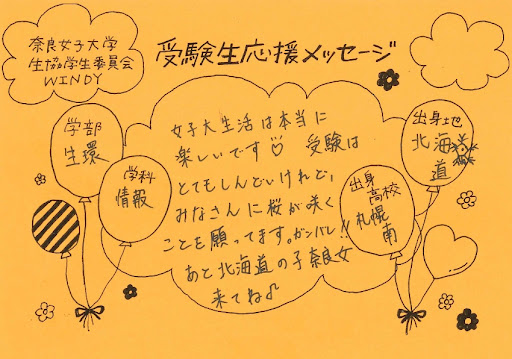 奈良女子大学
生協学生委員会
WINDY
受験生応援メッセージ
学部
生環
学科
情報
女子大生活は本当に
楽しいです♡ 受験は
とてもしんどいけれど、
みなさんに桜が咲く
ことを願ってます。ガンバレ!!
あと北海道の子奈良女
来てね♪
出身地
北海道
出身高校
札幌南